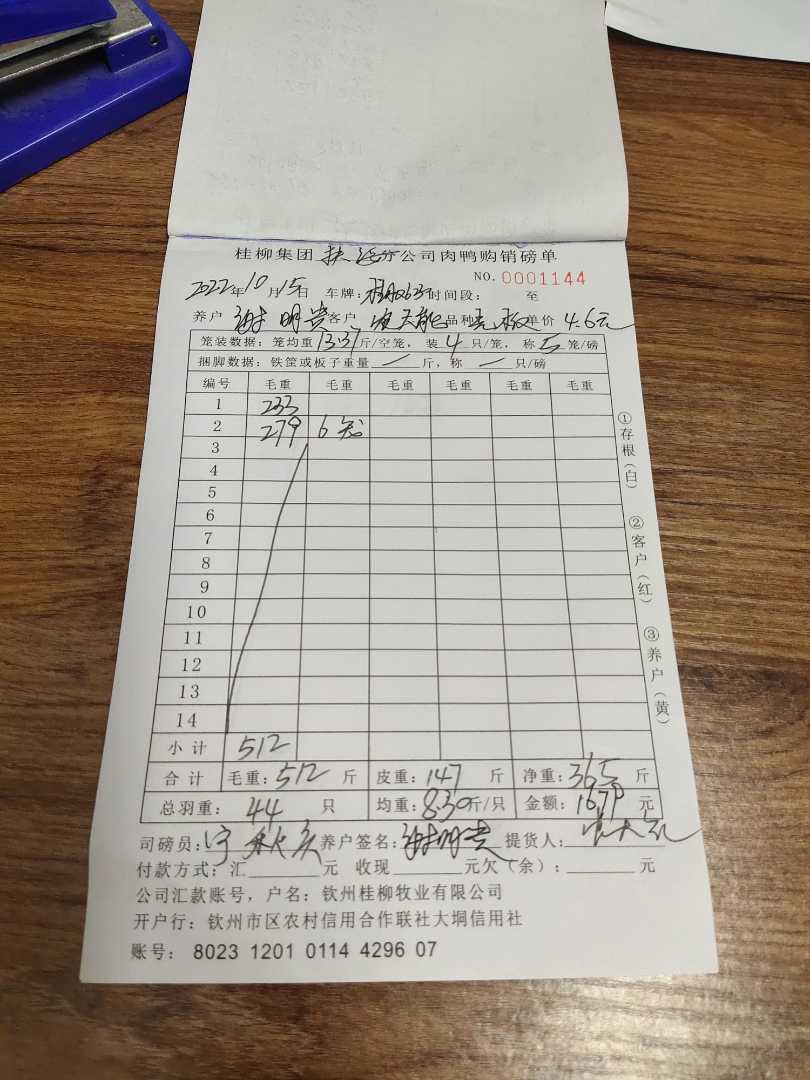 桂柳集团 扶 分公司肉鸭购销磅单
NO. 0001144
2022年10月15日 车牌: 时间段: 至
养户 谢明贵 客户 品种 单价 4.6元
笼装数据:笼均重13.37斤/空笼,装4只/笼,称5笼/磅
捆脚数据:铁筐或板子重量 / 斤,称 / 只/磅
编号 毛重 毛重 毛重 毛重 毛重 毛重
1 233
2 279 6笼
3
4
5
6
7
8
9
10
11
12
13
14
小计 512
合计 毛重:512 斤 皮重:147 斤 净重:365 斤
总羽重: 44 只 均重:8.30斤/只 金额:1679 元
司磅员: 养户签名:谢明贵 提货人:
付款方式:汇 元 收现 元欠(余): 元
公司汇款账号,户名:钦州桂柳牧业有限公司
开户行:钦州市区农村信用合作联社大垌信用社
账号: 8023 1201 0114 4296 07
①存根(白) ②客户(红) ③养户(黄)